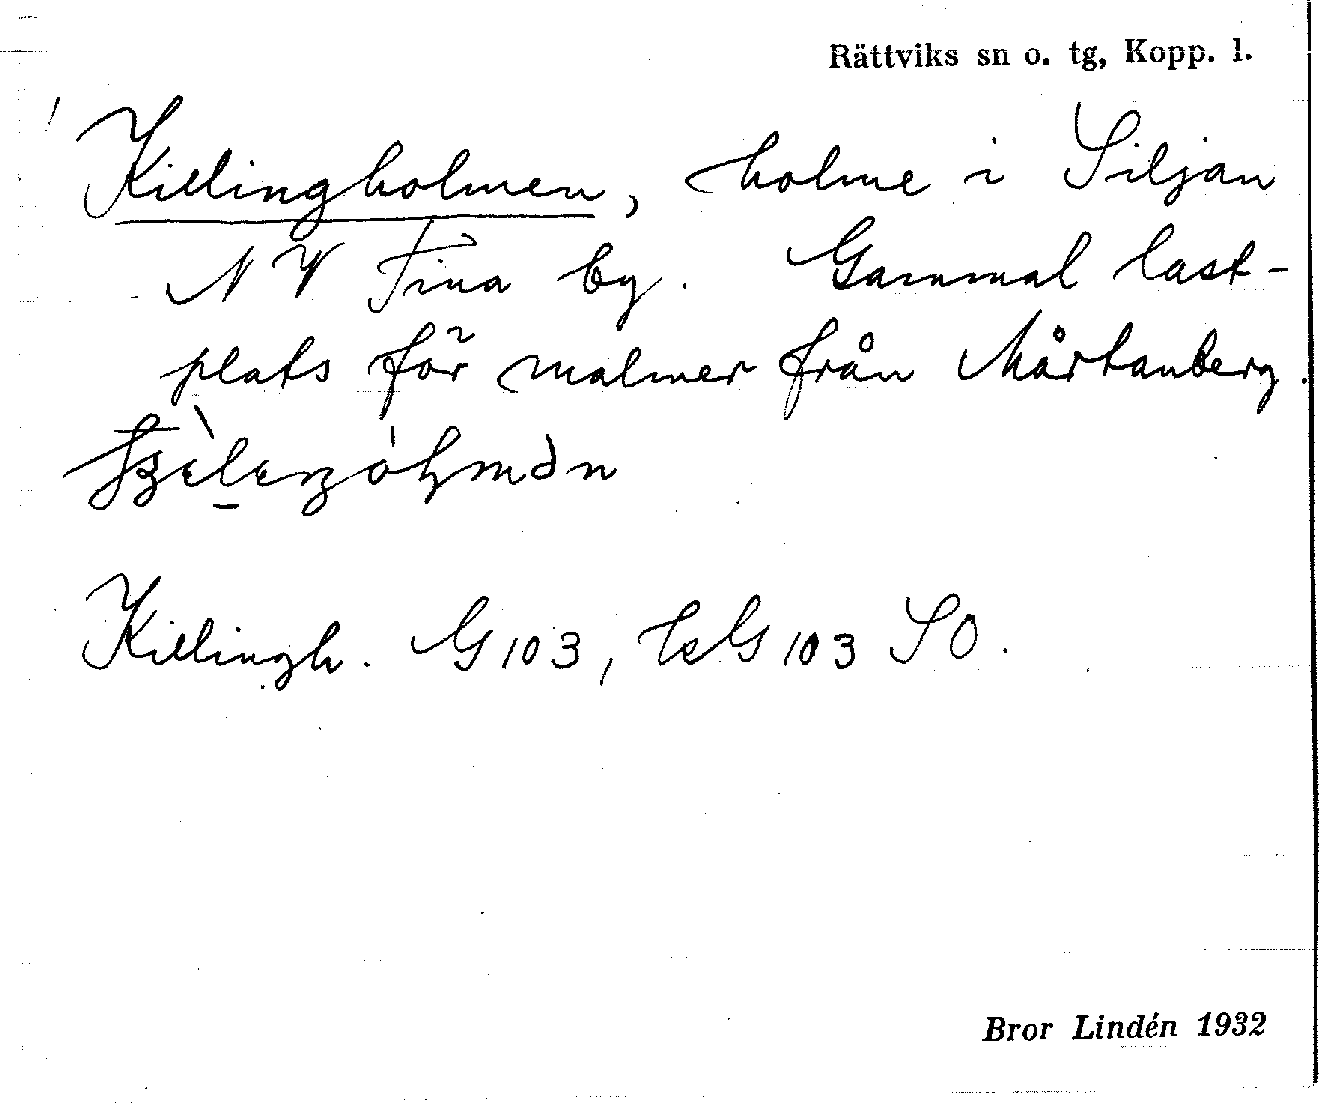 Rättviks sn o. tg, Kopp. l.
Killingholmen, holme i Siljan
NV Fina by. Gammal last-
plats för malmer från Mårtanberg.
Killingh. G 103, LsG 103 SO.
Bror Lindén 1932